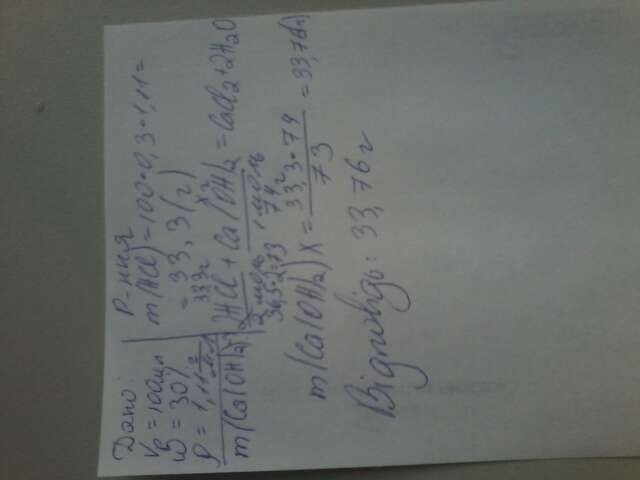 Дано:
Vр = 100 мл
ω = 30%
ρ = 1,11 г/мл
m(Ca(OH)2)-?
Р-ння
m(HCl) = 100·0,3·1,11 =
= 33,3(г)
33,3г xг
2HCl + Ca(OH)2 = CaCl2 + 2H2O
2 моль 1 моль
36,5·2=73 74г
m(Ca(OH)2) X = 33,3·74/73 = 33,76(г)
Відповідь: 33,76 г